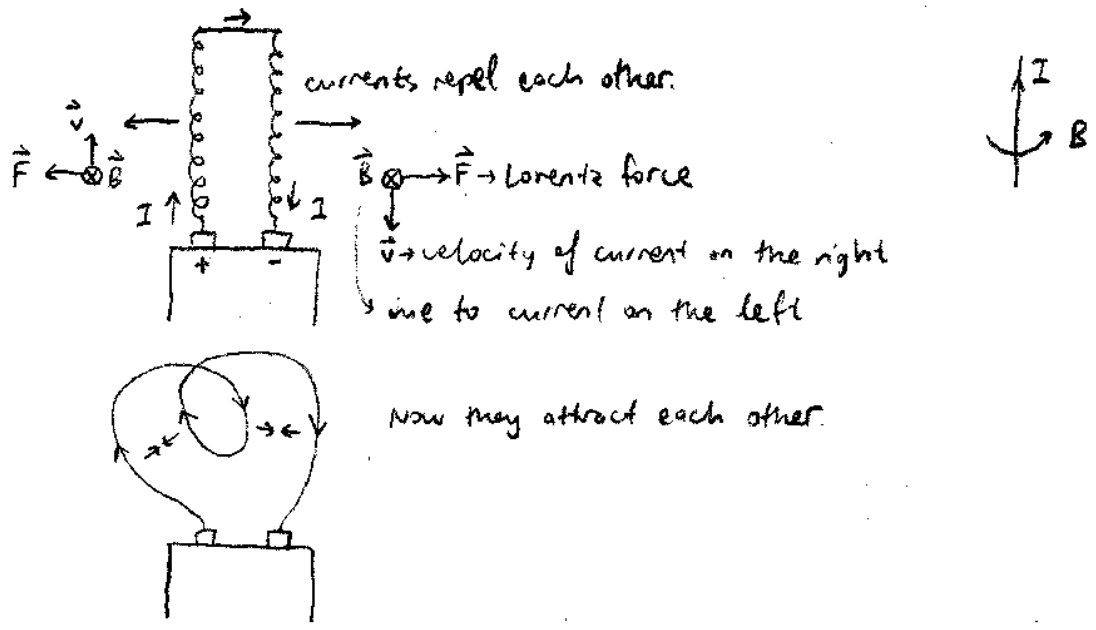 currents repel each other.
I
B
v
F B
B F → Lorentz force
I I
v → velocity of current on the right
+ -
due to current on the left
Now they attract each other.